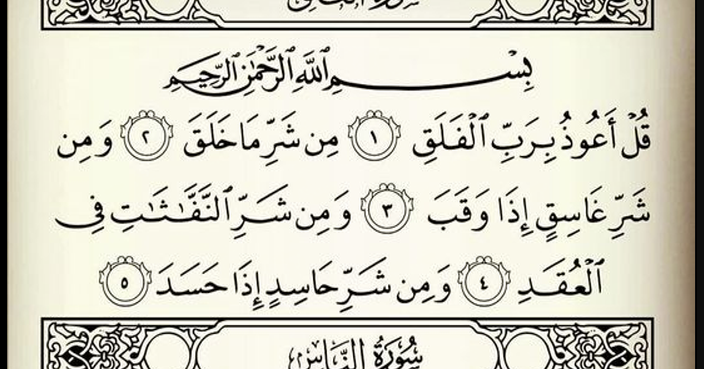 سورة الفلق
بِسْمِ ٱللَّهِ ٱلرَّحْمَٰنِ ٱلرَّحِيمِ
قُلْ أَعُوذُ بِرَبِّ ٱلْفَلَقِ ١ مِن شَرِّ مَا خَلَقَ ٢ وَمِن
شَرِّ غَاسِقٍ إِذَا وَقَبَ ٣ وَمِن شَرِّ ٱلنَّفَّٰثَٰتِ فِى
ٱلْعُقَدِ ٤ وَمِن شَرِّ حَاسِدٍ إِذَا حَسَدَ ٥
سُورَةُ النَّاسِ